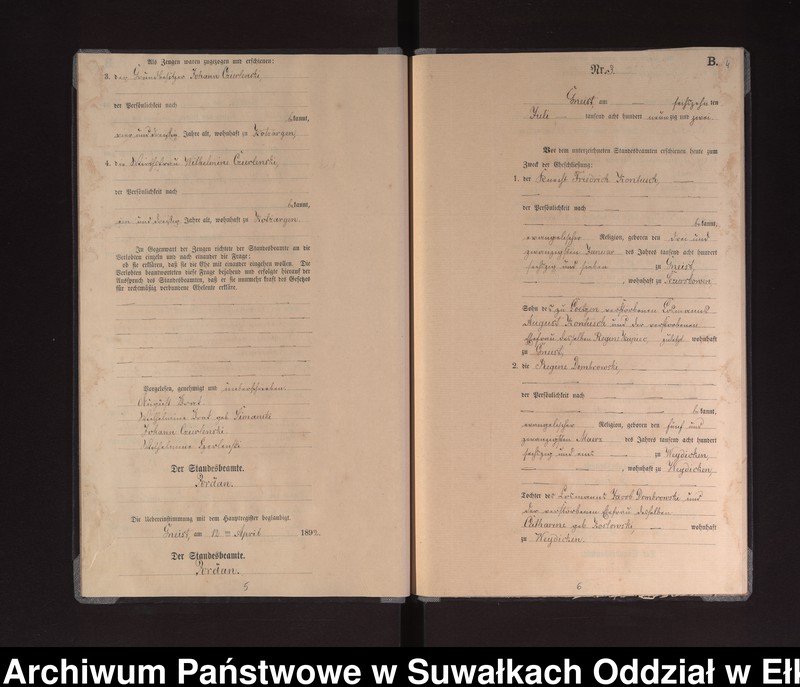 Als Zeugen waren zugezogen und erschienen:
3. der Grundbesitzer Johann Czwolenski,
der Persönlichkeit nach
bekannt,
vier und dreißig Jahre alt, wohnhaft zu
4. die Wirthsfrau Wilhelmine Czwolenski,
der Persönlichkeit nach
bekannt,
ein und dreißig Jahre alt, wohnhaft zu
In Gegenwart der Zeugen richtete der Standesbeamte an die
Verlobten einzeln und nach einander die Frage:
ob sie erklären, daß sie die Ehe mit einander eingehen wollen. Die
Verlobten beantworteten diese Frage bejahend und erfolgte hierauf der
Ausspruch des Standesbeamten, daß er sie nunmehr kraft des Gesetzes
für rechtmäßig verbundene Eheleute erkläre.
Vorgelesen, genehmigt und unterschrieben
August
Wilhelmine geb
Johann Czwolenski
Wilhelmine Czwolenski
Der Standesbeamte.
Pordan.
Die Uebereinstimmung mit dem Hauptregister beglaubigt.
Gneist, am 12 ten April 1892.
Der Standesbeamte.
Pordan.
5
B.
Nr. 3
Gneist, am sechszehn ten
Juli tausend acht hundert neunzig und zwei
Vor dem unterzeichneten Standesbeamten erschienen heute zum
Zweck der Eheschließung:
1. der Knecht Friedrich Kontusch
der Persönlichkeit nach
bekannt,
evangelischer Religion, geboren den drei und
zwanzigsten Januar des Jahres tausend acht hundert
sechszig und sieben zu Gneist,
, wohnhaft zu
Sohn des zu verstorbenen Losmanns
August Kontusch und der verstorbenen
Ehefrau desselben Regine zuletzt wohnhaft
zu Gneist,
2. die Regine Dombrowski,
der Persönlichkeit nach
bekannt,
evangelischer Religion, geboren den fünf und
zwanzigsten Maerz des Jahres tausend acht hundert
sechszig und eins zu Weydicken,
, wohnhaft zu Weydicken,
Tochter des Losmanns Jacob Dombrowski und
der verstorbenen Ehefrau desselben
Catharine geb Koslowski, wohnhaft
zu Weydicken.
6
Archiwum Państwowe w Suwałkach Oddział w Ełk